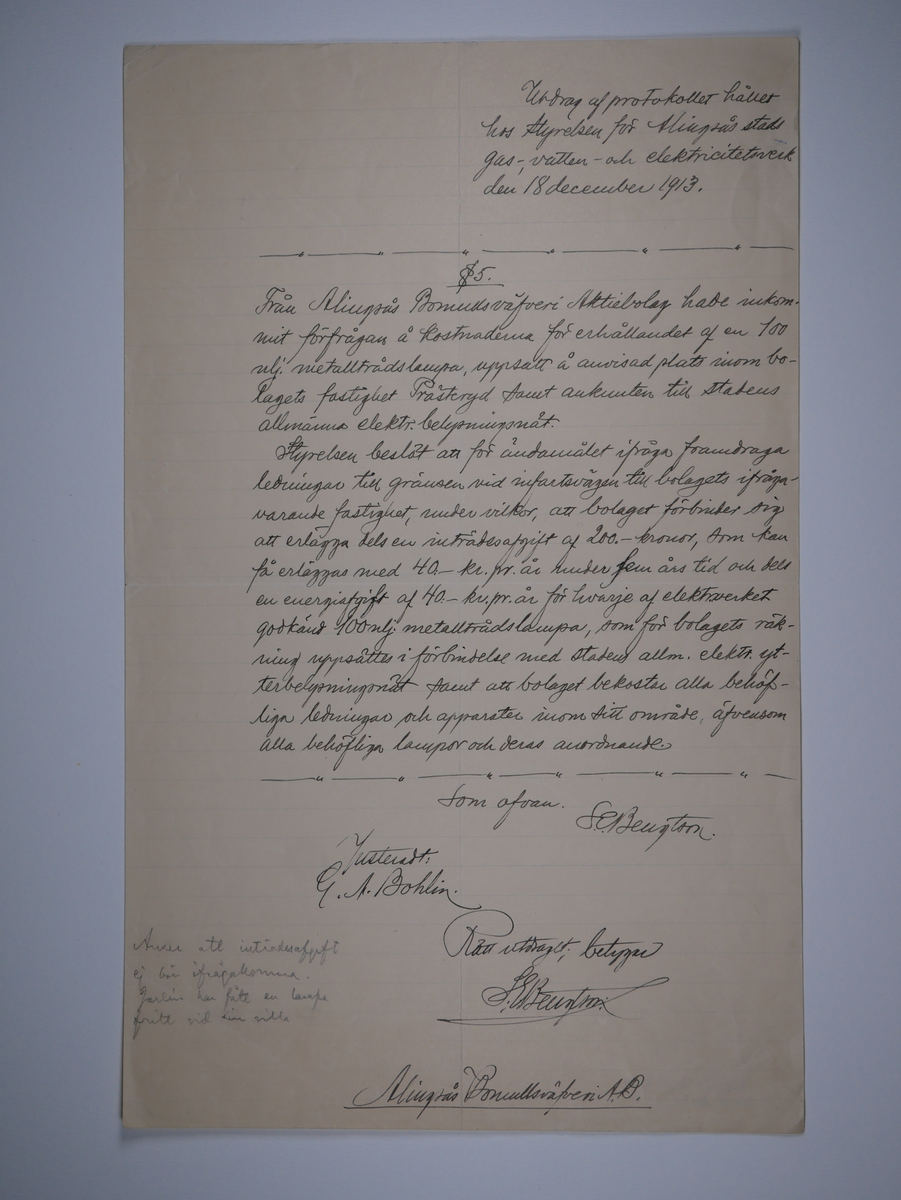 Utdrag af protokollet hållet
hos Styrelsen för Alingsås stads
gas-, vatten- och elektricitetsverk
den 18 december 1913.
§ 5.
Från Alingsås Bomullsväfveri Aktiebolag hade inkom-
mit förfrågan å kostnaderna för erhållandet af en 100
nlj. metalltrådslampa, uppsatt å anvisad plats inom bo-
lagets fastighet Prästeryd samt ankuten till stadens
allmänna elektr. belysningsnät.
Styrelsen beslöt att för ändamålet ifråga framdraga
ledningar till gränsen vid infartsvägen till bolagets ifråga-
varande fastighet, under vilkor, att bolaget förbinder sig
att erlägga dels en inträdesafgift af 200.- kronor, som kan
få erläggas med 40.- kr. pr. år under fem års tid och dels
en energiafgift af 40.- kr. pr. år för hvarje af elektr.verket
godkänd 100 nlj. metalltrådslampa, som för bolagets räk-
ning uppsättes i förbindelse med stadens allm. elektr. yt-
terbelysningsnät samt att bolaget bekostar alla behöf-
liga ledningar och apparater inom sitt område, äfvensom
alla behöfliga lampor och deras anordnande.
Som ofvan.
S.E. Bengtson.
Justeradt:
G. A. Bohlin.
Rätt utdraget, betygar
S.E. Bengtson.
Anser att inträdesafgift
ej bör ifrågakomma.
har fått en lampa
fritt vid sin villa
Alingsås Bomullsväfveri A.B.